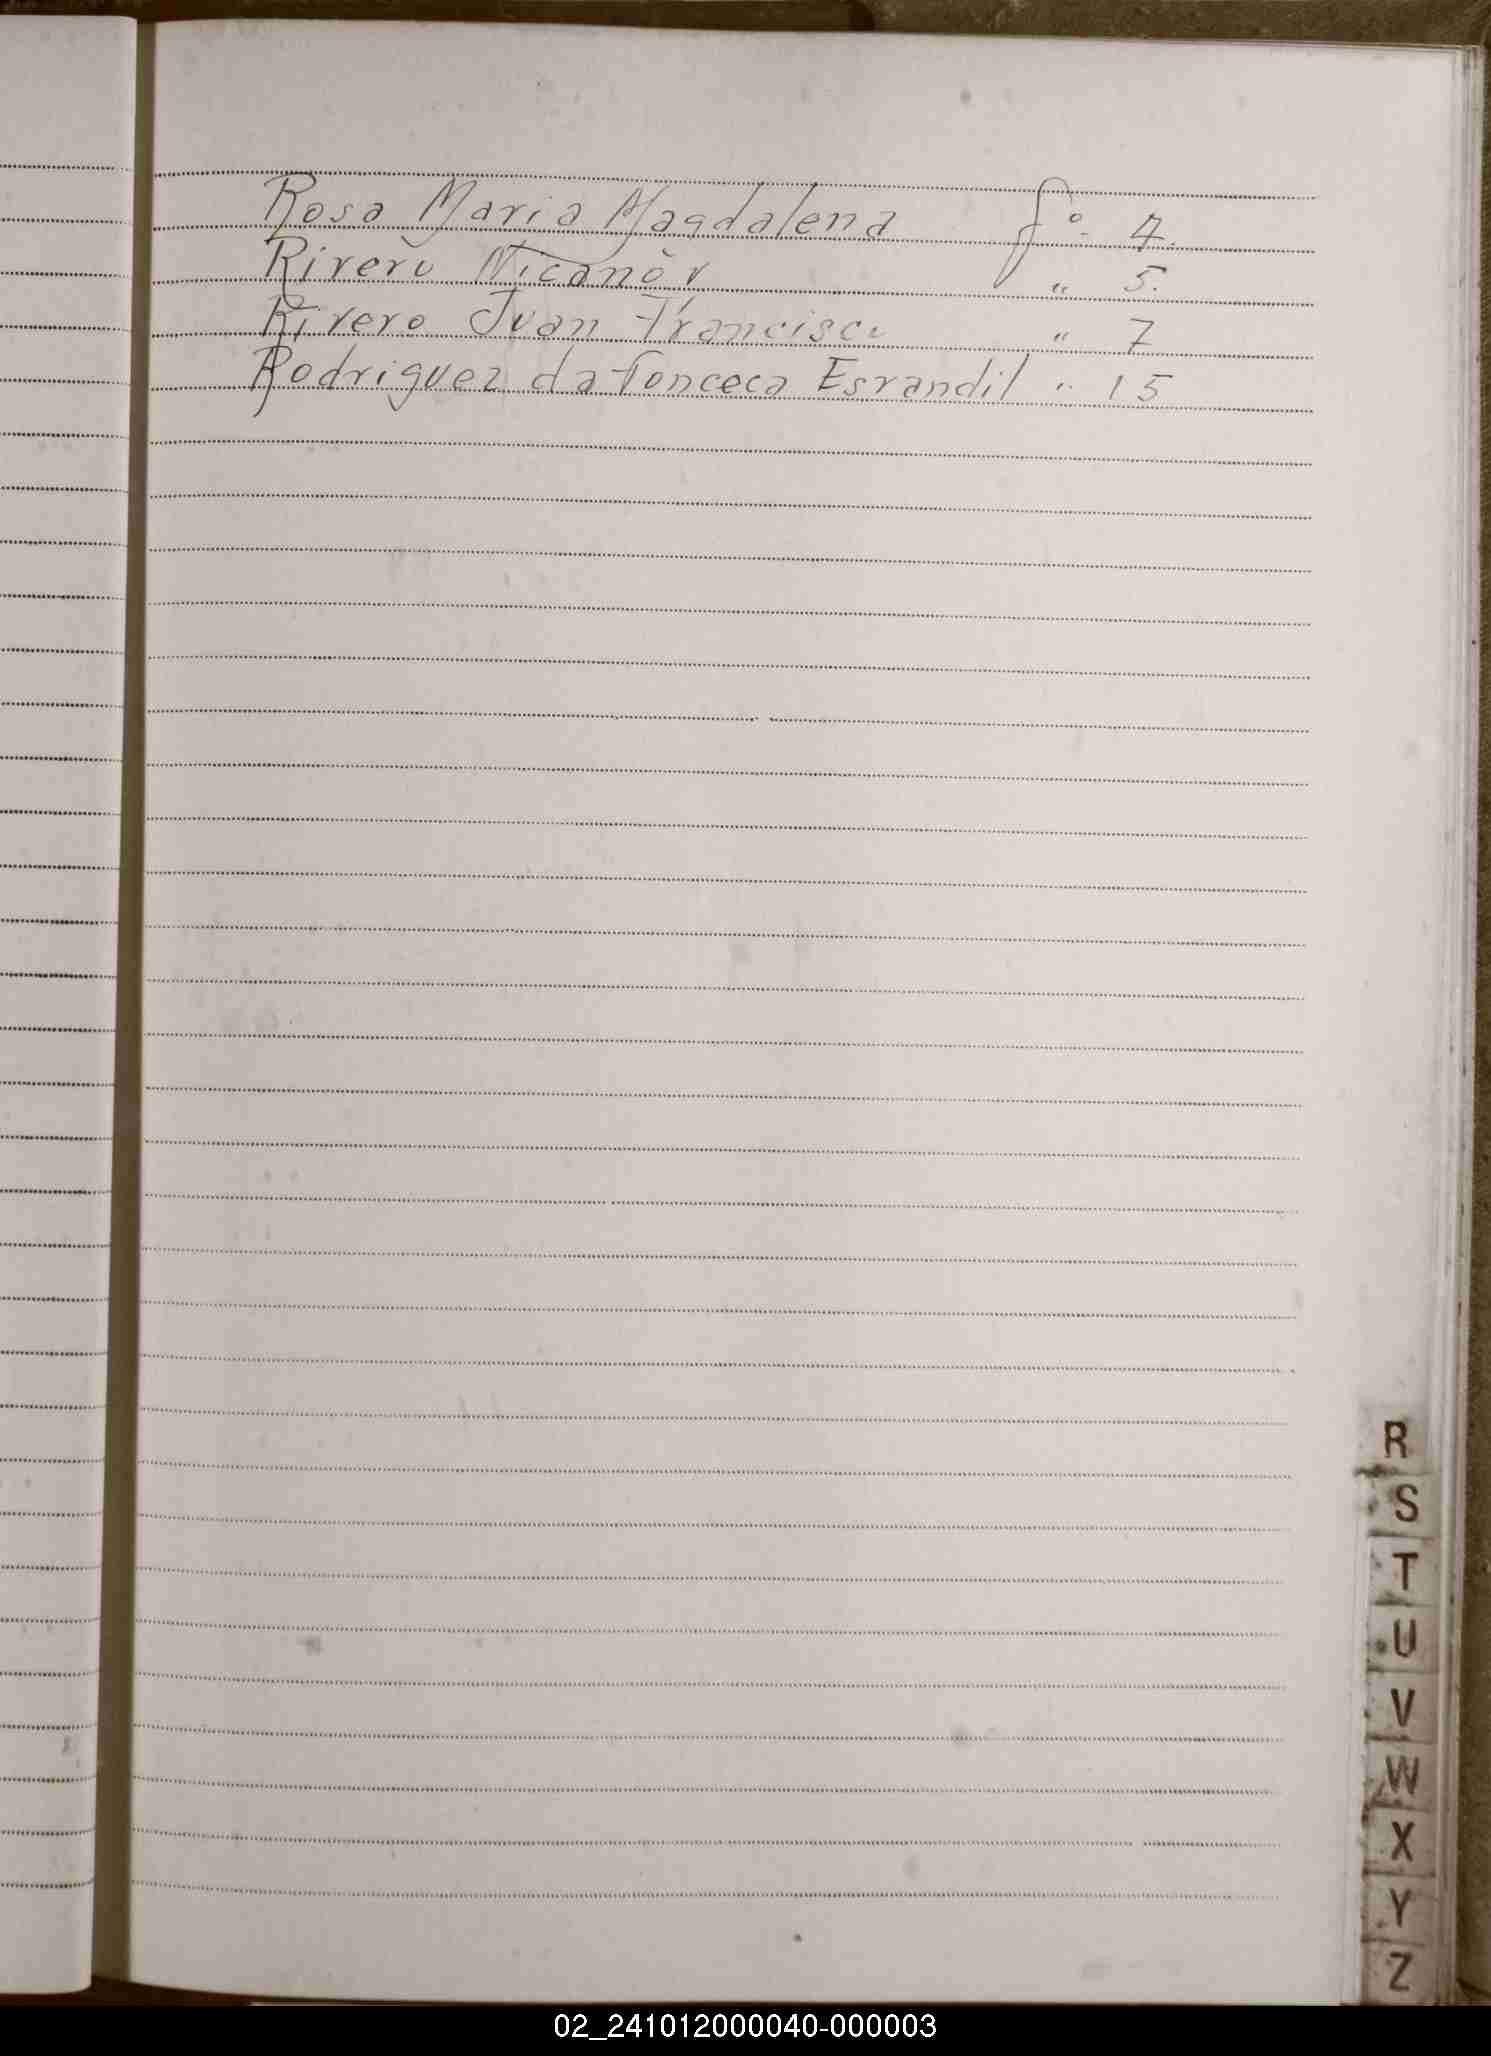 Rosa Maria Magdalena fº 4.
Rivero Nicanòr " 5.
Rivero Juan Francisco " 7
Rodriguez da Fonceca Esrandil " 15
R
S
T
U
V
W
X
Y
Z
02_241012000040-000003